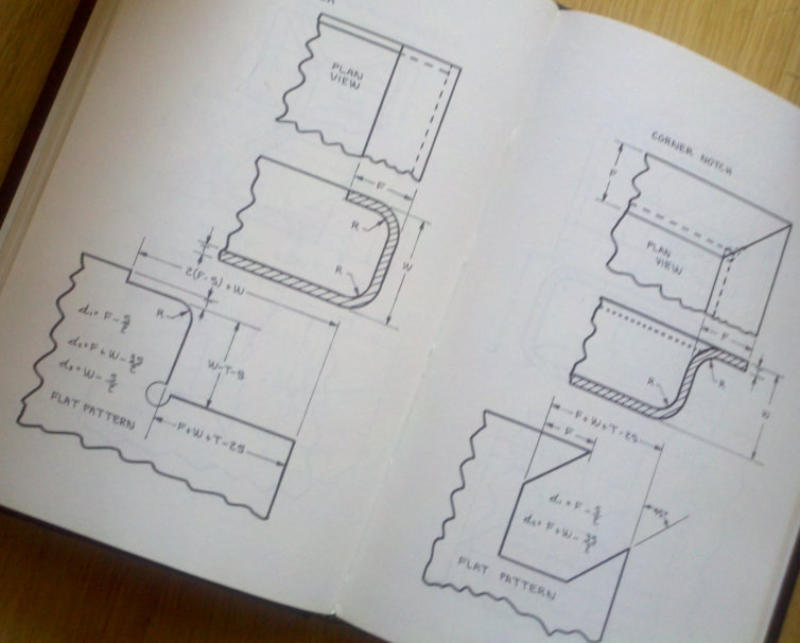 PLAN
VIEW
F
R
R
W
2(F-S)+W
R
d₁=F-S/2
d₂=F+W-3S/2
d₃=W-S/2
FLAT PATTERN
W-T-S
F+W+T-2S
CORNER NOTCH
F
PLAN
VIEW
F
R
R
F+W+T-2S
F
d₁=F-S/2
d₂=F+W-3S/2
45°
FLAT PATTERN